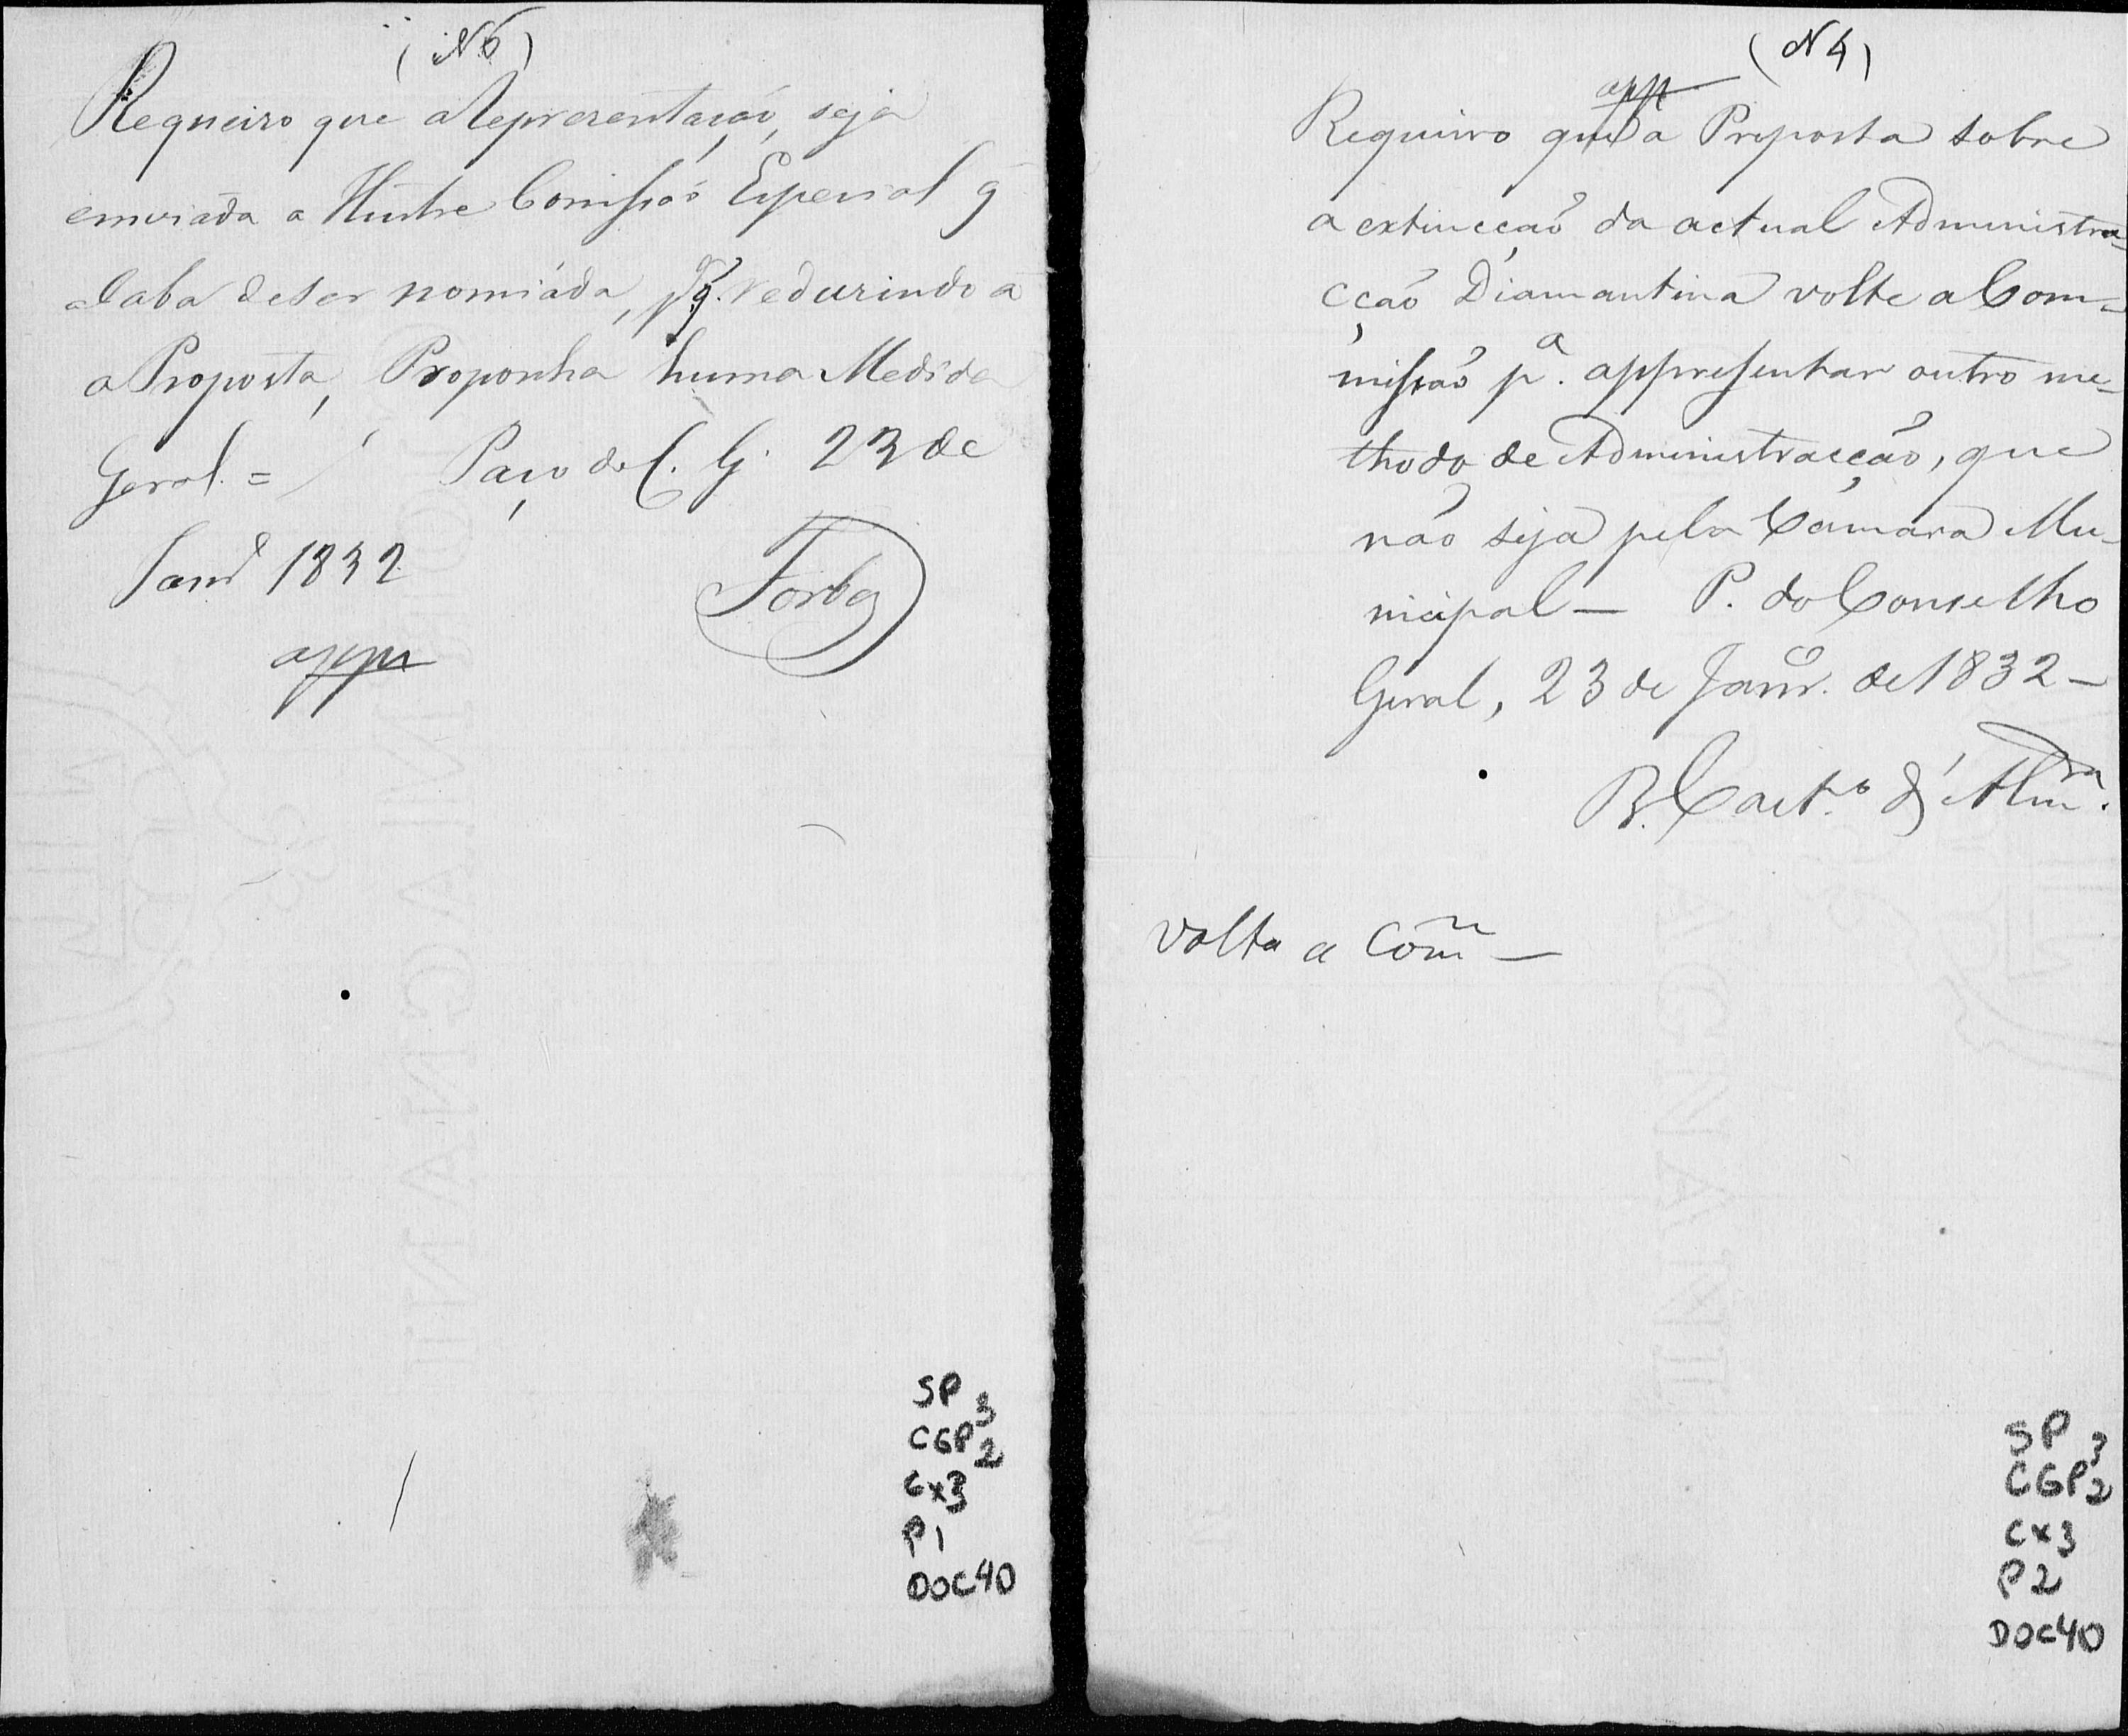 (N 6)
Requeiro que a Representação, seja
enviada a Illustre Comissão Especial q̃
acaba de ser nomiada, pª q. redusindo a
a Proposta, Proponha huma Medida
Geral = Paço do C. G. 23 de
Janrº 1832
app
SP 3
CGP 2
Cx3
P1
DOC40
(N 4)
app
Requeiro que a Proposta sobre
a extincção da actual Administra=
cção Diamantina volte a Com=
missão pª. appresentar outro me-
thodo de Administracção, que
não seja pela Camara Mu-
nicipal — P. do Conselho
Geral, 23 de Janrº. de 1832 —
B. Caetº. d'Almdª.
volta a Com̃ —
SP 3
CGP 2
Cx3
P2
DOC40